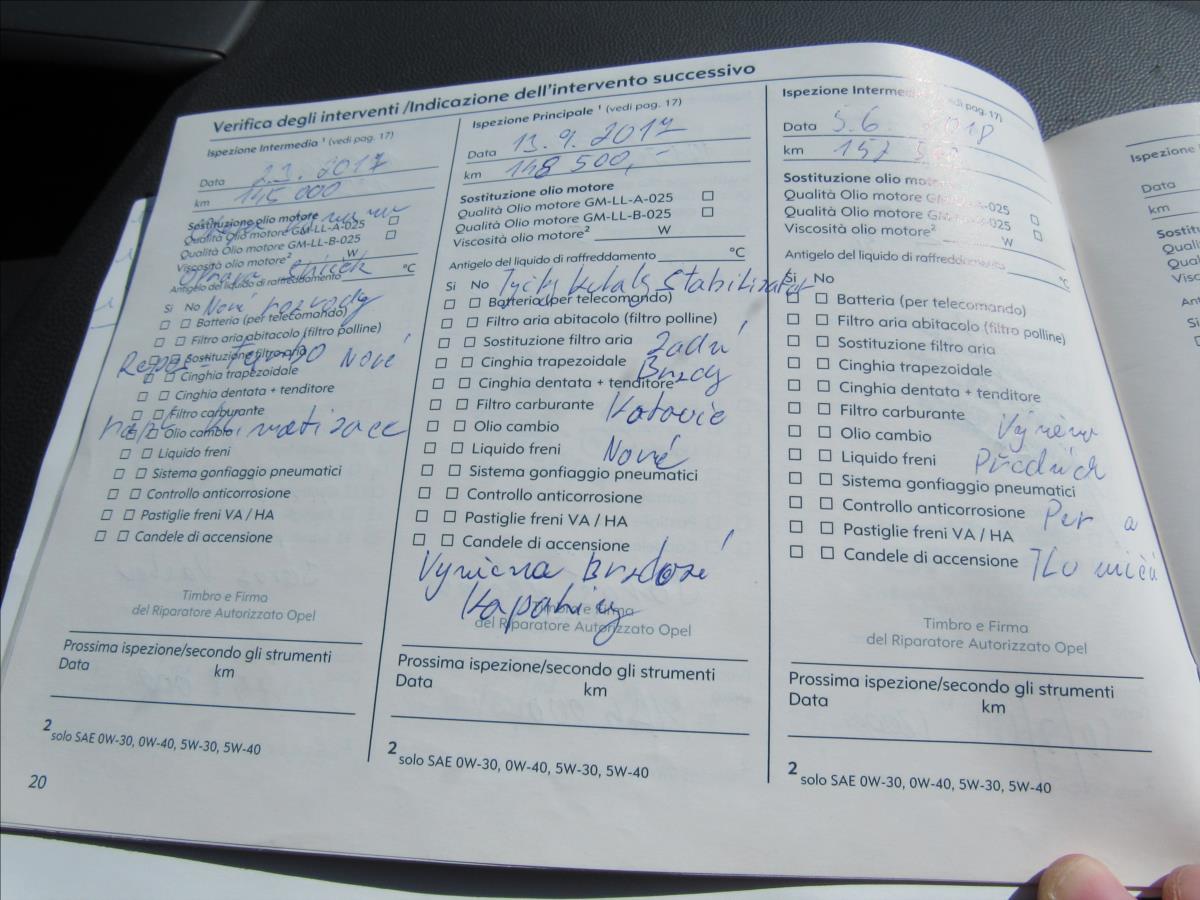 Verifica degli interventi /Indicazione dell'intervento successivo
Ispezione Intermedia ¹ (vedi pag. 17)
Data 2017
km 145 000
Sostituzione olio motore
Qualità Olio motore GM-LL-A-025
Qualità Olio motore GM-LL-B-025
Viscosità olio motore² W
Oprava
Antigelo del liquido di raffreddamento °C
Si No Nové rozvody
Batteria (per telecomando)
Filtro aria abitacolo (filtro polline)
Sostituzione filtro aria
Repas Turbo Nové
Cinghia trapezoidale
Cinghia dentata + tenditore
Filtro carburante
Olio cambio
Liquido freni
Sistema gonfiaggio pneumatici
Controllo anticorrosione
Pastiglie freni VA / HA
Candele di accensione
Timbro e Firma
del Riparatore Autorizzato Opel
Prossima ispezione/secondo gli strumenti
Data km
2 solo SAE 0W-30, 0W-40, 5W-30, 5W-40
20
Ispezione Principale ¹ (vedi pag. 17)
Data 13. 9. 2017
km 148 500,-
Sostituzione olio motore
Qualità Olio motore GM-LL-A-025
Qualità Olio motore GM-LL-B-025
Viscosità olio motore² W
Antigelo del liquido di raffreddamento °C
Si No Tyčky Stabilizátor
Batteria (per telecomando)
Filtro aria abitacolo (filtro polline)
Sostituzione filtro aria Zadní
Cinghia trapezoidale Brzdy
Cinghia dentata + tenditore
Filtro carburante Kotouče
Olio cambio
Liquido freni Nové
Sistema gonfiaggio pneumatici
Controllo anticorrosione
Pastiglie freni VA / HA
Candele di accensione
Výměna Brzdové
Kapaliny
Timbro e Firma
del Riparatore Autorizzato Opel
Prossima ispezione/secondo gli strumenti
Data km
2 solo SAE 0W-30, 0W-40, 5W-30, 5W-40
Ispezione Intermedia (vedi pag. 17)
Data 5.6. 2018
km
Sostituzione olio motore
Qualità Olio motore GM-LL-A-025
Qualità Olio motore GM-LL-B-025
Viscosità olio motore² W
Antigelo del liquido di raffreddamento °C
Si No
Batteria (per telecomando)
Filtro aria abitacolo (filtro polline)
Sostituzione filtro aria
Cinghia trapezoidale
Cinghia dentata + tenditore
Filtro carburante Výměna
Olio cambio
Liquido freni Předních
Sistema gonfiaggio pneumatici
Controllo anticorrosione Per a
Pastiglie freni VA / HA
Candele di accensione Tlumičů
Timbro e Firma
del Riparatore Autorizzato Opel
Prossima ispezione/secondo gli strumenti
Data km
2 solo SAE 0W-30, 0W-40, 5W-30, 5W-40
Data
km